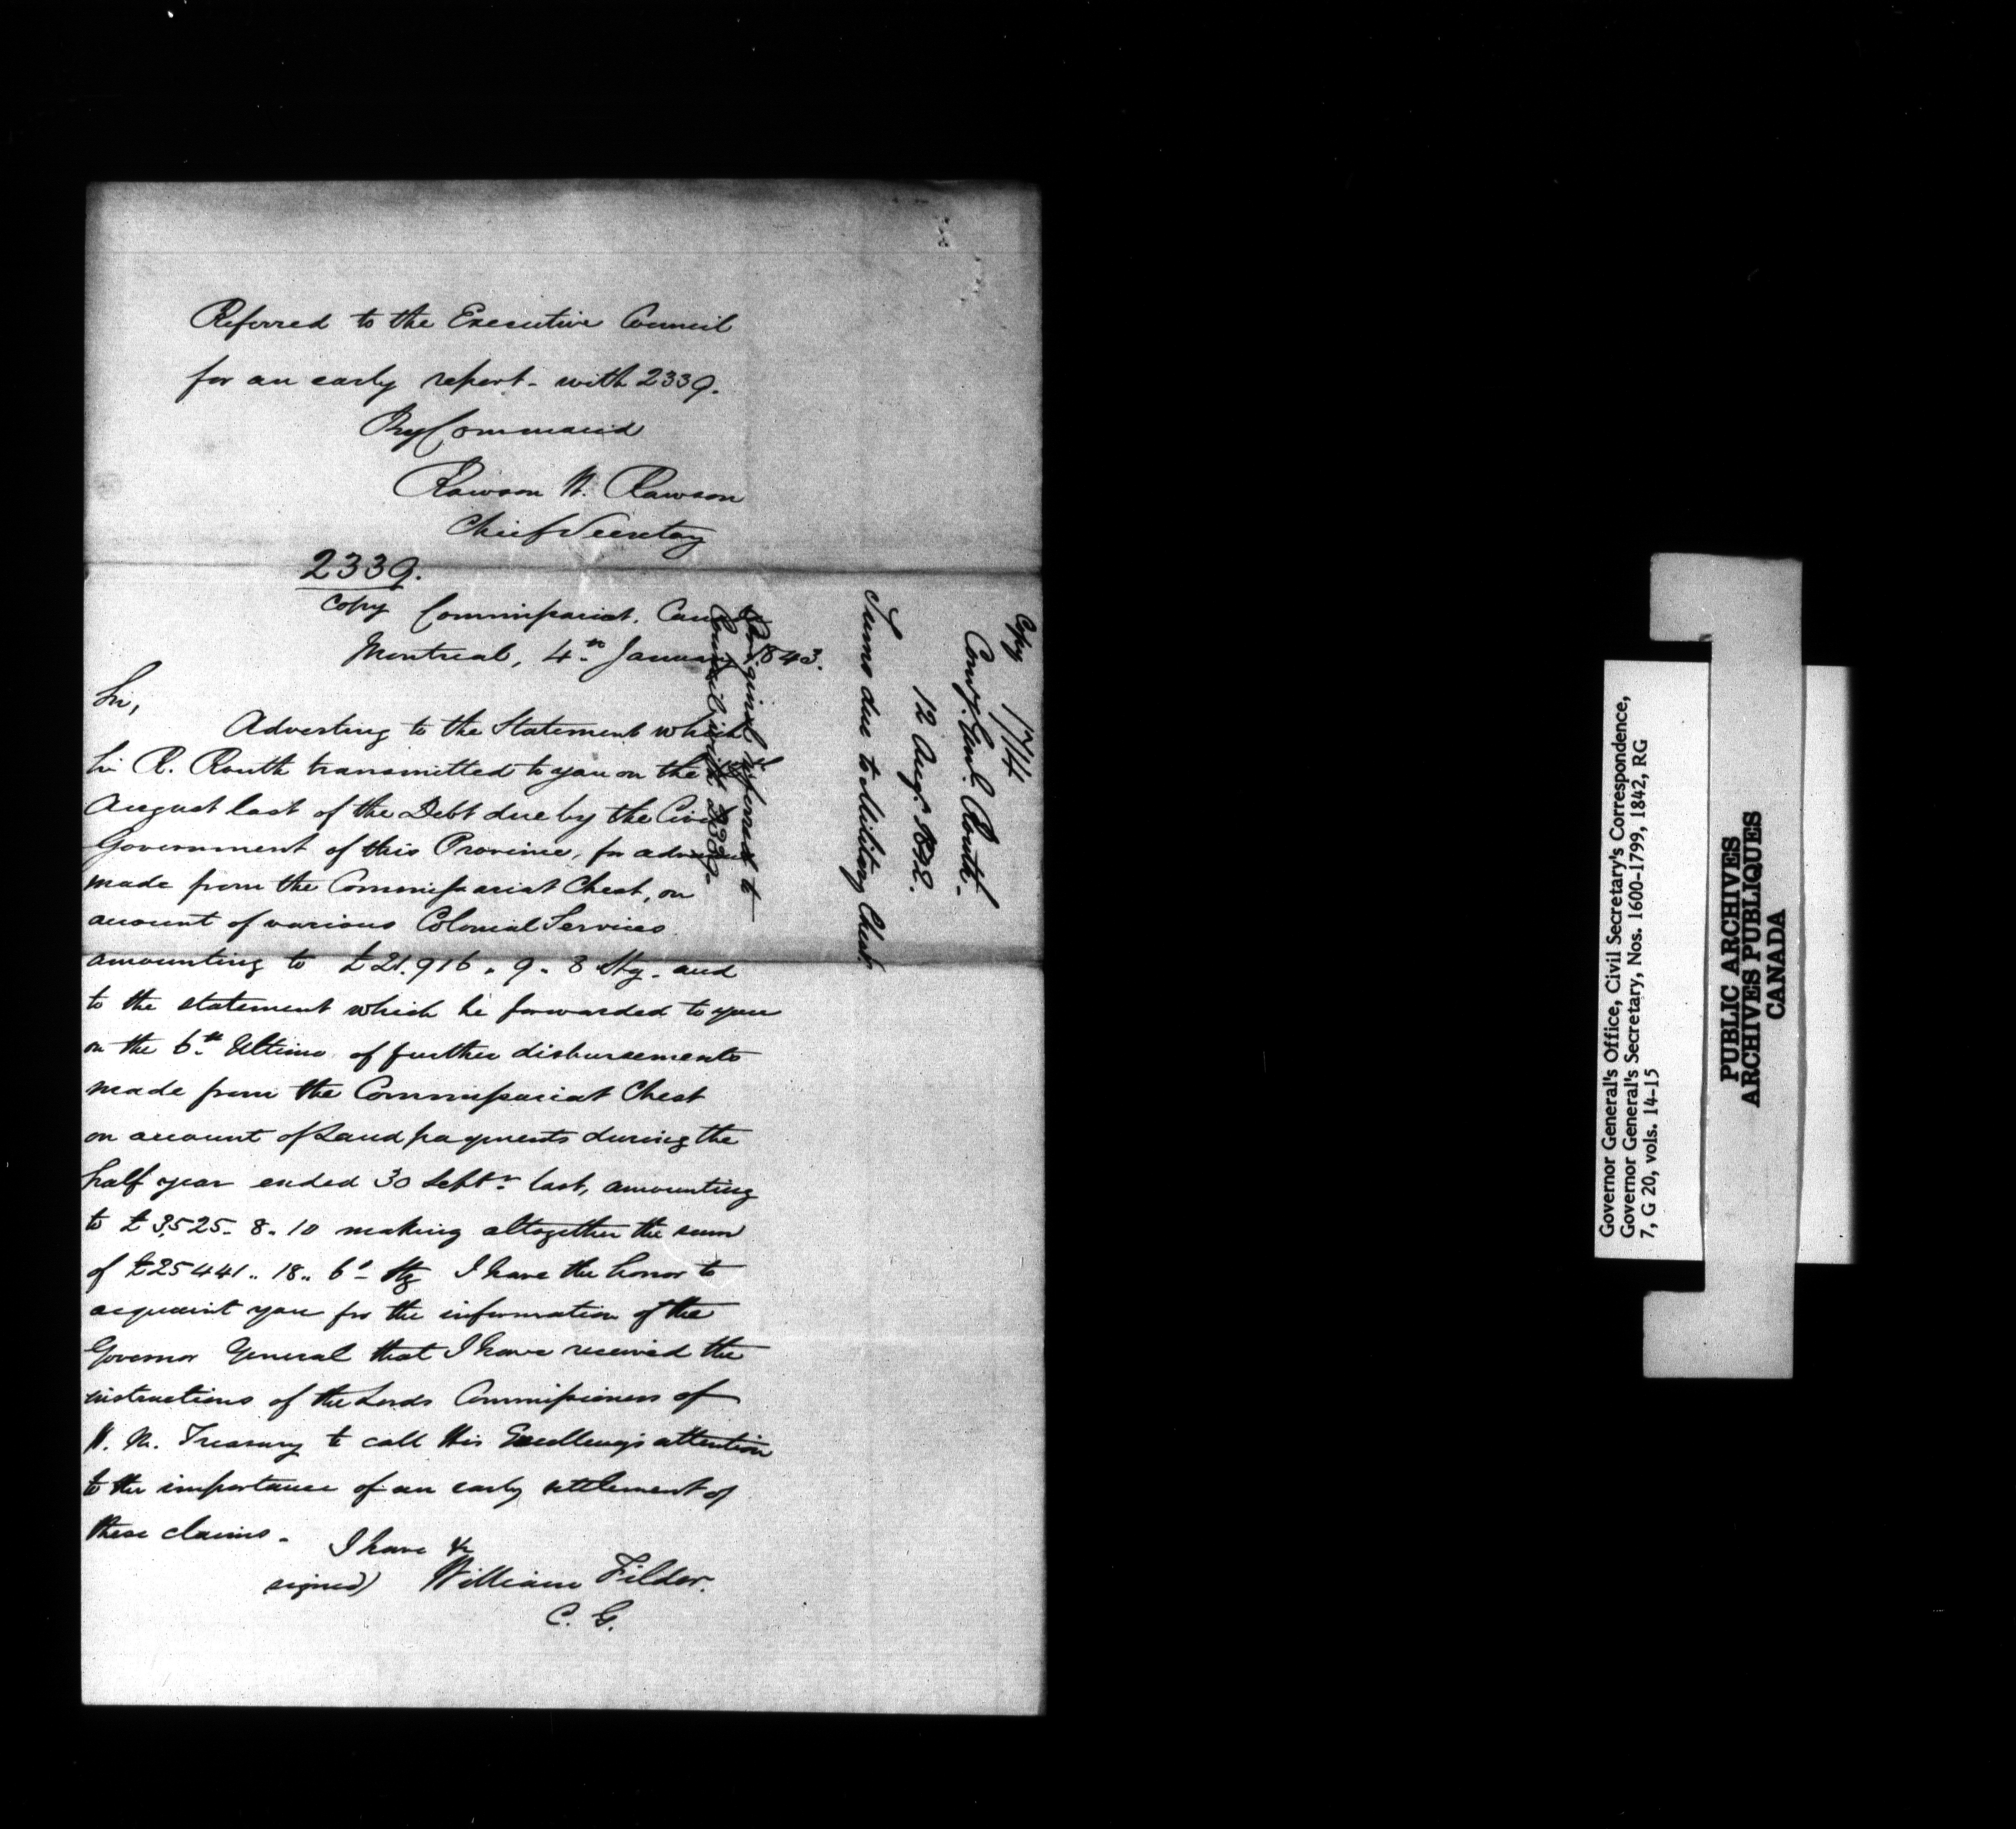 Referred to the Executive Council
for an early report - with 2339.
By Command
Rawson W. Rawson
Chief Secretary
2339.
Copy Commissariat. Canada
Montreal, 4th January 1843.
Sir,
Adverting to the Statement which
Sir R. Routh transmitted to you on the
August last of the Debt due by the Civil
Government of this Province, for advances
made from the Commissariat Chest, on
account of various Colonial Services
amounting to £21.916 „ 9 „ 8 Stg. and
to the statement which he forwarded to you
on the 6th Ultimo of further disbursements
made from the Commissariat Chest
on account of Land payments during the
half year ended 30 Septr last, amounting
to £3,525 - 8 „ 10 making altogether the sum
of £25441 „ 18 „ 6d - Stg I have the honor to
acquaint you for the information of the
Governor General that I have received the
instructions of the Lords Commissioners of
H. M. Treasury to call His Excellency's attention
to the importance of an early settlement of
these claims -
I have &c
signed) William Filder.
C. G.
Original referred to
Council, with 2339.
Copy 1714
Comy. Genl. Routh.
12 Augt. 1842.
Sums due to Military Chest.
Governor General's Office, Civil Secretary's Correspondence,
Governor General's Secretary, Nos. 1600-1799, 1842, RG
7, G 20, vols. 14-15
PUBLIC ARCHIVES
ARCHIVES PUBLIQUES
CANADA